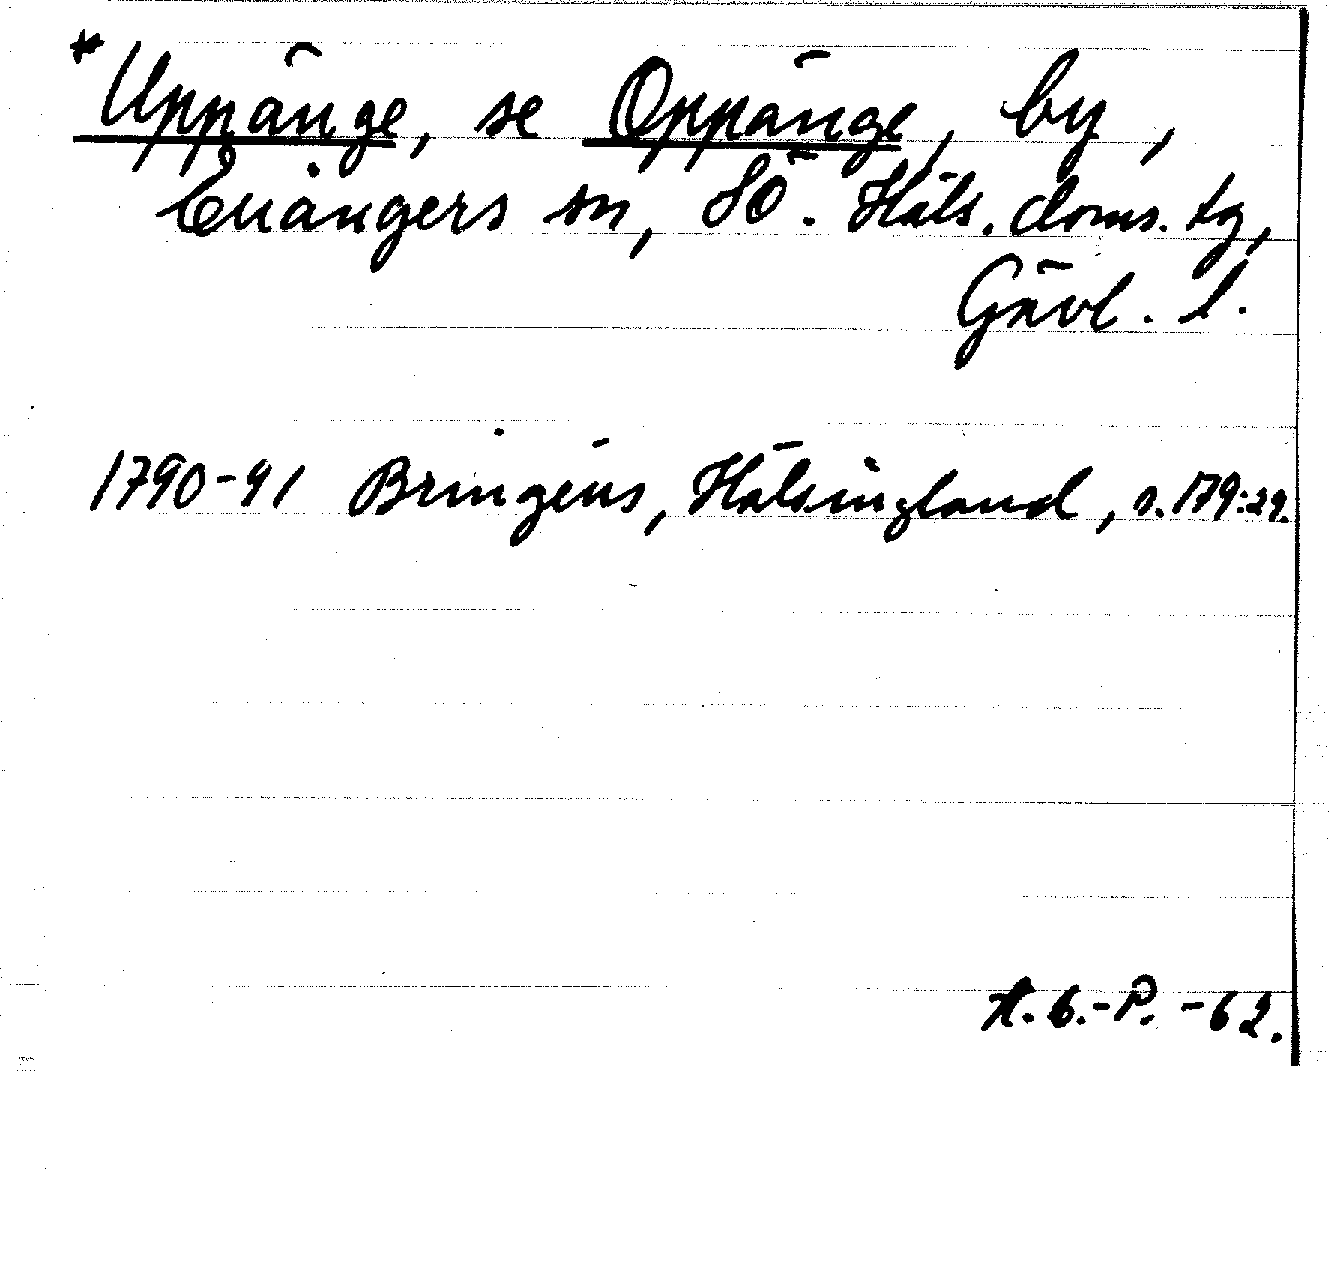 *Uppänge, se Oppänge, by,
Enångers sn, SÖ. Häls. doms. tg,
Gävl. l.
1790-91 Bringéus, Hälsingland, s. 179:29.
-P. -62.